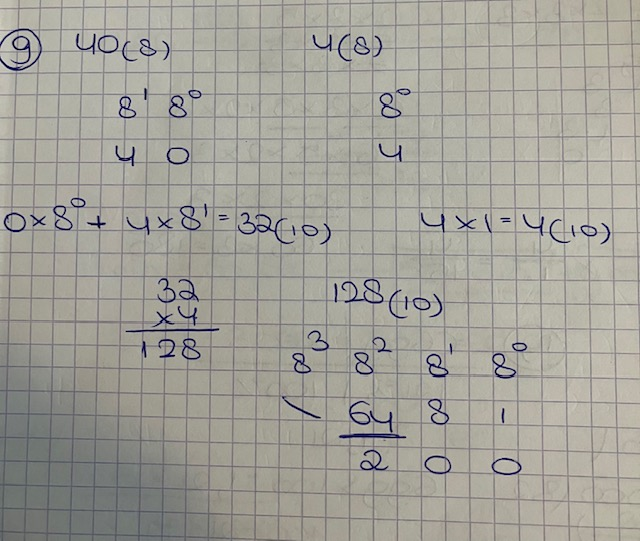 9 40(8) 4(8)
8¹ 8⁰ 8⁰
4 0 4
0×8⁰ + 4×8¹ = 32(10) 4×1 = 4(10)
32 128(10)
×4
128 8³ 8² 8¹ 8⁰
\ 64 8 1
2 0 0